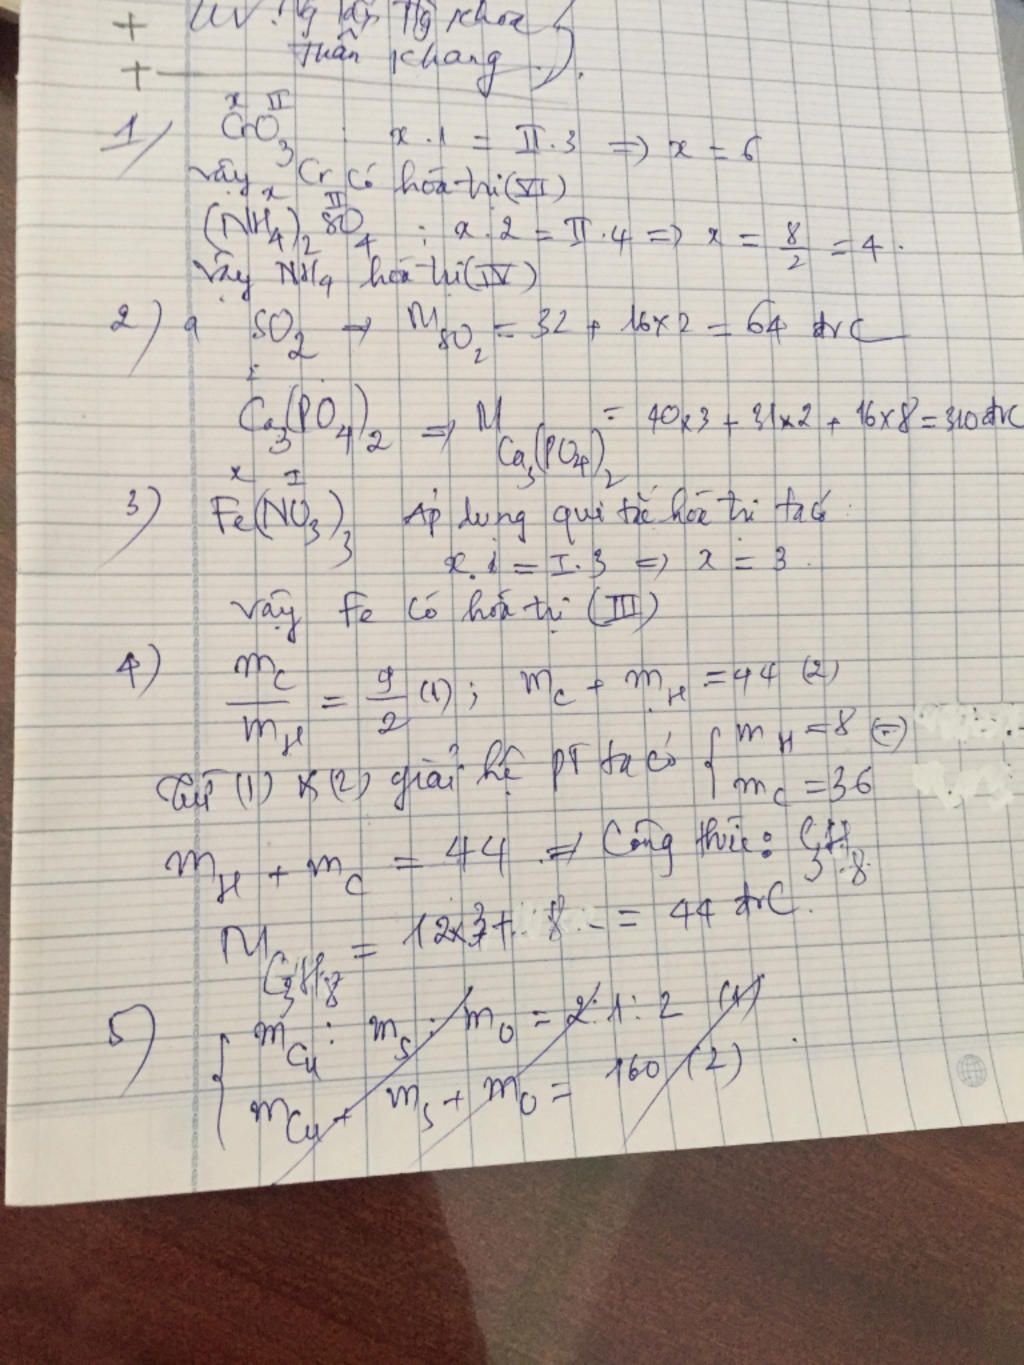 +
Thuần Khang
+
1) CrO₃ : x . 1 = II . 3 => x = 6
x II
Vậy Cr có hóa trị (VI)
x II
(NH₄)₂SO₄ : x . 2 = II . 4 => x = 8/2 = 4 .
Vậy NH₄ hóa trị (IV)
2) a SO₂ → M SO₂ = 32 + 16x2 = 64 đvC
Ca₃(PO₄)₂ => M Ca₃(PO₄)₂ = 40x3 + 31x2 + 16x8 = 310 đvC
x I
3) Fe(NO₃)₃ Áp dụng qui tắc hóa trị ta có :
x . 1 = I . 3 => x = 3 .
Vậy Fe có hóa trị (III)
4) m_C / m_H = 9/2 (1) ; m_C + m_H = 44 (2)
Từ (1) & (2) giải hệ PT ta có { m_H = 8 (=)
m_C = 36
m_H + m_C = 44 => Công thức : C₃H₈
M C₃H₈ = 12x3 + 8 = 44 đvC .
5) { m_Cu : m_S : m_O = 2 : 1 : 2 (1)
m_Cu + m_S + m_O = 160 (2)